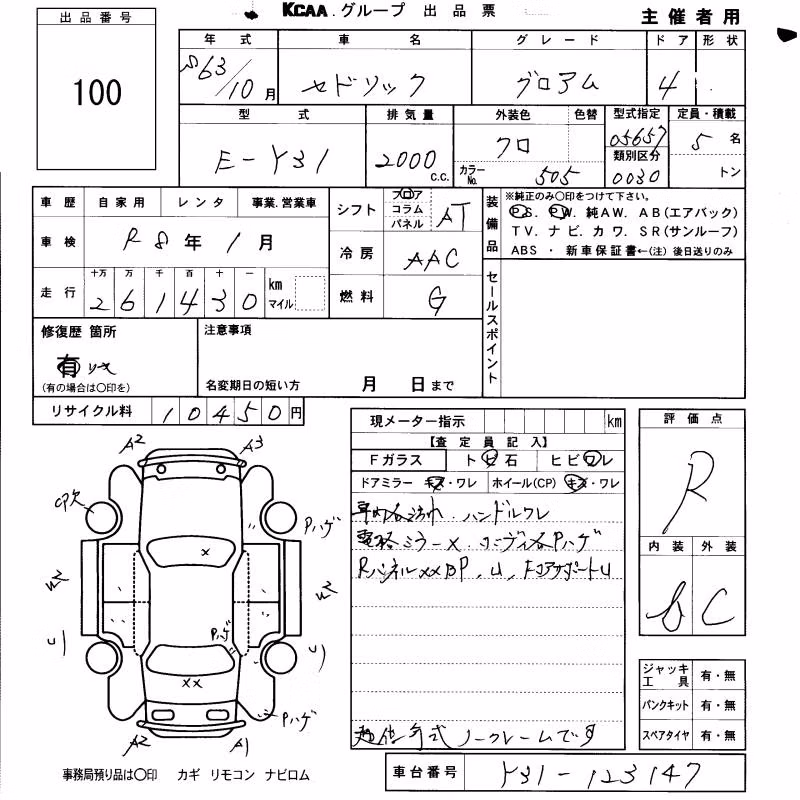 KCAA.グループ 出品票
主催者用
出品番号
100
年式 車名 グレード ドア 形状
S63/10月 セドリック グロアム 4
型式 排気量 外装色 色替 型式指定 定員・積載
E-Y31 2000c.c. クロ カラーNo. 505 05657 5名
類別区分
0030 トン
車歴 自家用 レンタ 事業.営業車
車検 R8年1月
走行 十万 万 千 百 十 一 km
261430 マイル
シフト フロア コラム パネル AT
冷房 AAC
燃料 G
装備品
※純正のみ○印をつけて下さい。
P.S. P.W. 純AW. AB(エアバック)
TV. ナビ. カワ. SR(サンルーフ)
ABS ・ 新車保証書←(注) 後日送りのみ
セールスポイント
修復歴 箇所
有
(有の場合は○印を)
注意事項
名変期日の短い方 月 日まで
リサイクル料 10450円
現メーター指示 km
【査定員記入】
Fガラス トビ石 ヒビワレ
ドアミラー キズ・ワレ ホイール(CP) キズ・ワレ
ハンドルワレ
電格ミラー× Pハゲ
Rパネル××BP. U.
ノークレームです
評価点
R
内装 外装
C
ジャッキ工具 有・無
パンクキット 有・無
スペアタイヤ 有・無
A2 A3
CP欠
Pハゲ
×
Pハゲ
××
Pハゲ
A2 A1
事務局預り品は○印 カギ リモコン ナビロム
車台番号 Y31-123147